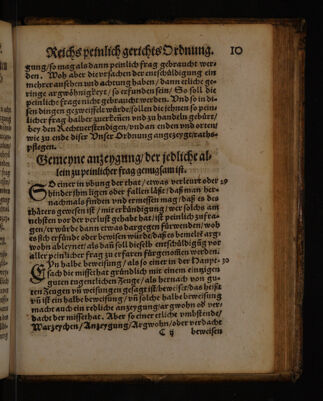 Reichs peinlich gerichts Ordnung. 10
gung/so mag als dann peinlich frag gebraucht wer-
den. Woh aber die vrsachen der entschüldigung ein
mehrer ansehen vnd achtung haben/dann etliche ge-
ringe argwöhnigkeyt/so erfunden sein/ So soll die
peinliche frage nicht gebraucht werden. Vnd so in di-
sen dingen gezweiffelt würde/sollen die ihenen so pein-
licher frag halber zu erkeñen vnd zu handeln gebürt/
bey den Rechtuerstendigen/vnd an enden vnd orten/
wie zu ende diser Vnser Ordnung angezeygt raths
pflegen.
Gemeyne anzeygung/der jedliche al-
lein zu peinlicher frag genugsam ist.
SO einer in übung der that/etwas verleurt oder 29
hinder ihm ligen oder fallen laßt/daß man her-
nachmals finden vnd ermessen mag/daß es des
thäters gewesen ist/mit erkündigung/wer solchs am
nehsten vor der verlust gehabt hat/ist peinlich zu fra-
gen/er würde dann etwas dargegen fürwenden/woh
es sich erfünde oder bewisen würde/daß es bemelt arg-
wohn ableynet/als dañ soll dieselb entschüldigüg vor
aller peinlicher frag zu erfaren fürgenommen werden.
EYn halbe beweisung/als so einer in der Haupt- 30
sach die missethat gründlich mit einem einzigen
guten tugentlichen Zeuge/als hernach von gu-
ten Zeugen vñ weisungen gesagt ist/beweiset/das heist
vñ ist ein halbe beweisung/vñ solche halbe beweisung
macht auch ein redliche anzeygung/argwohn od ver-
dacht der missethat. Aber so einer etliche vmbstende/
Warzeychen/Anzeygung/Argwohn/ober verdacht
C ij beweisen